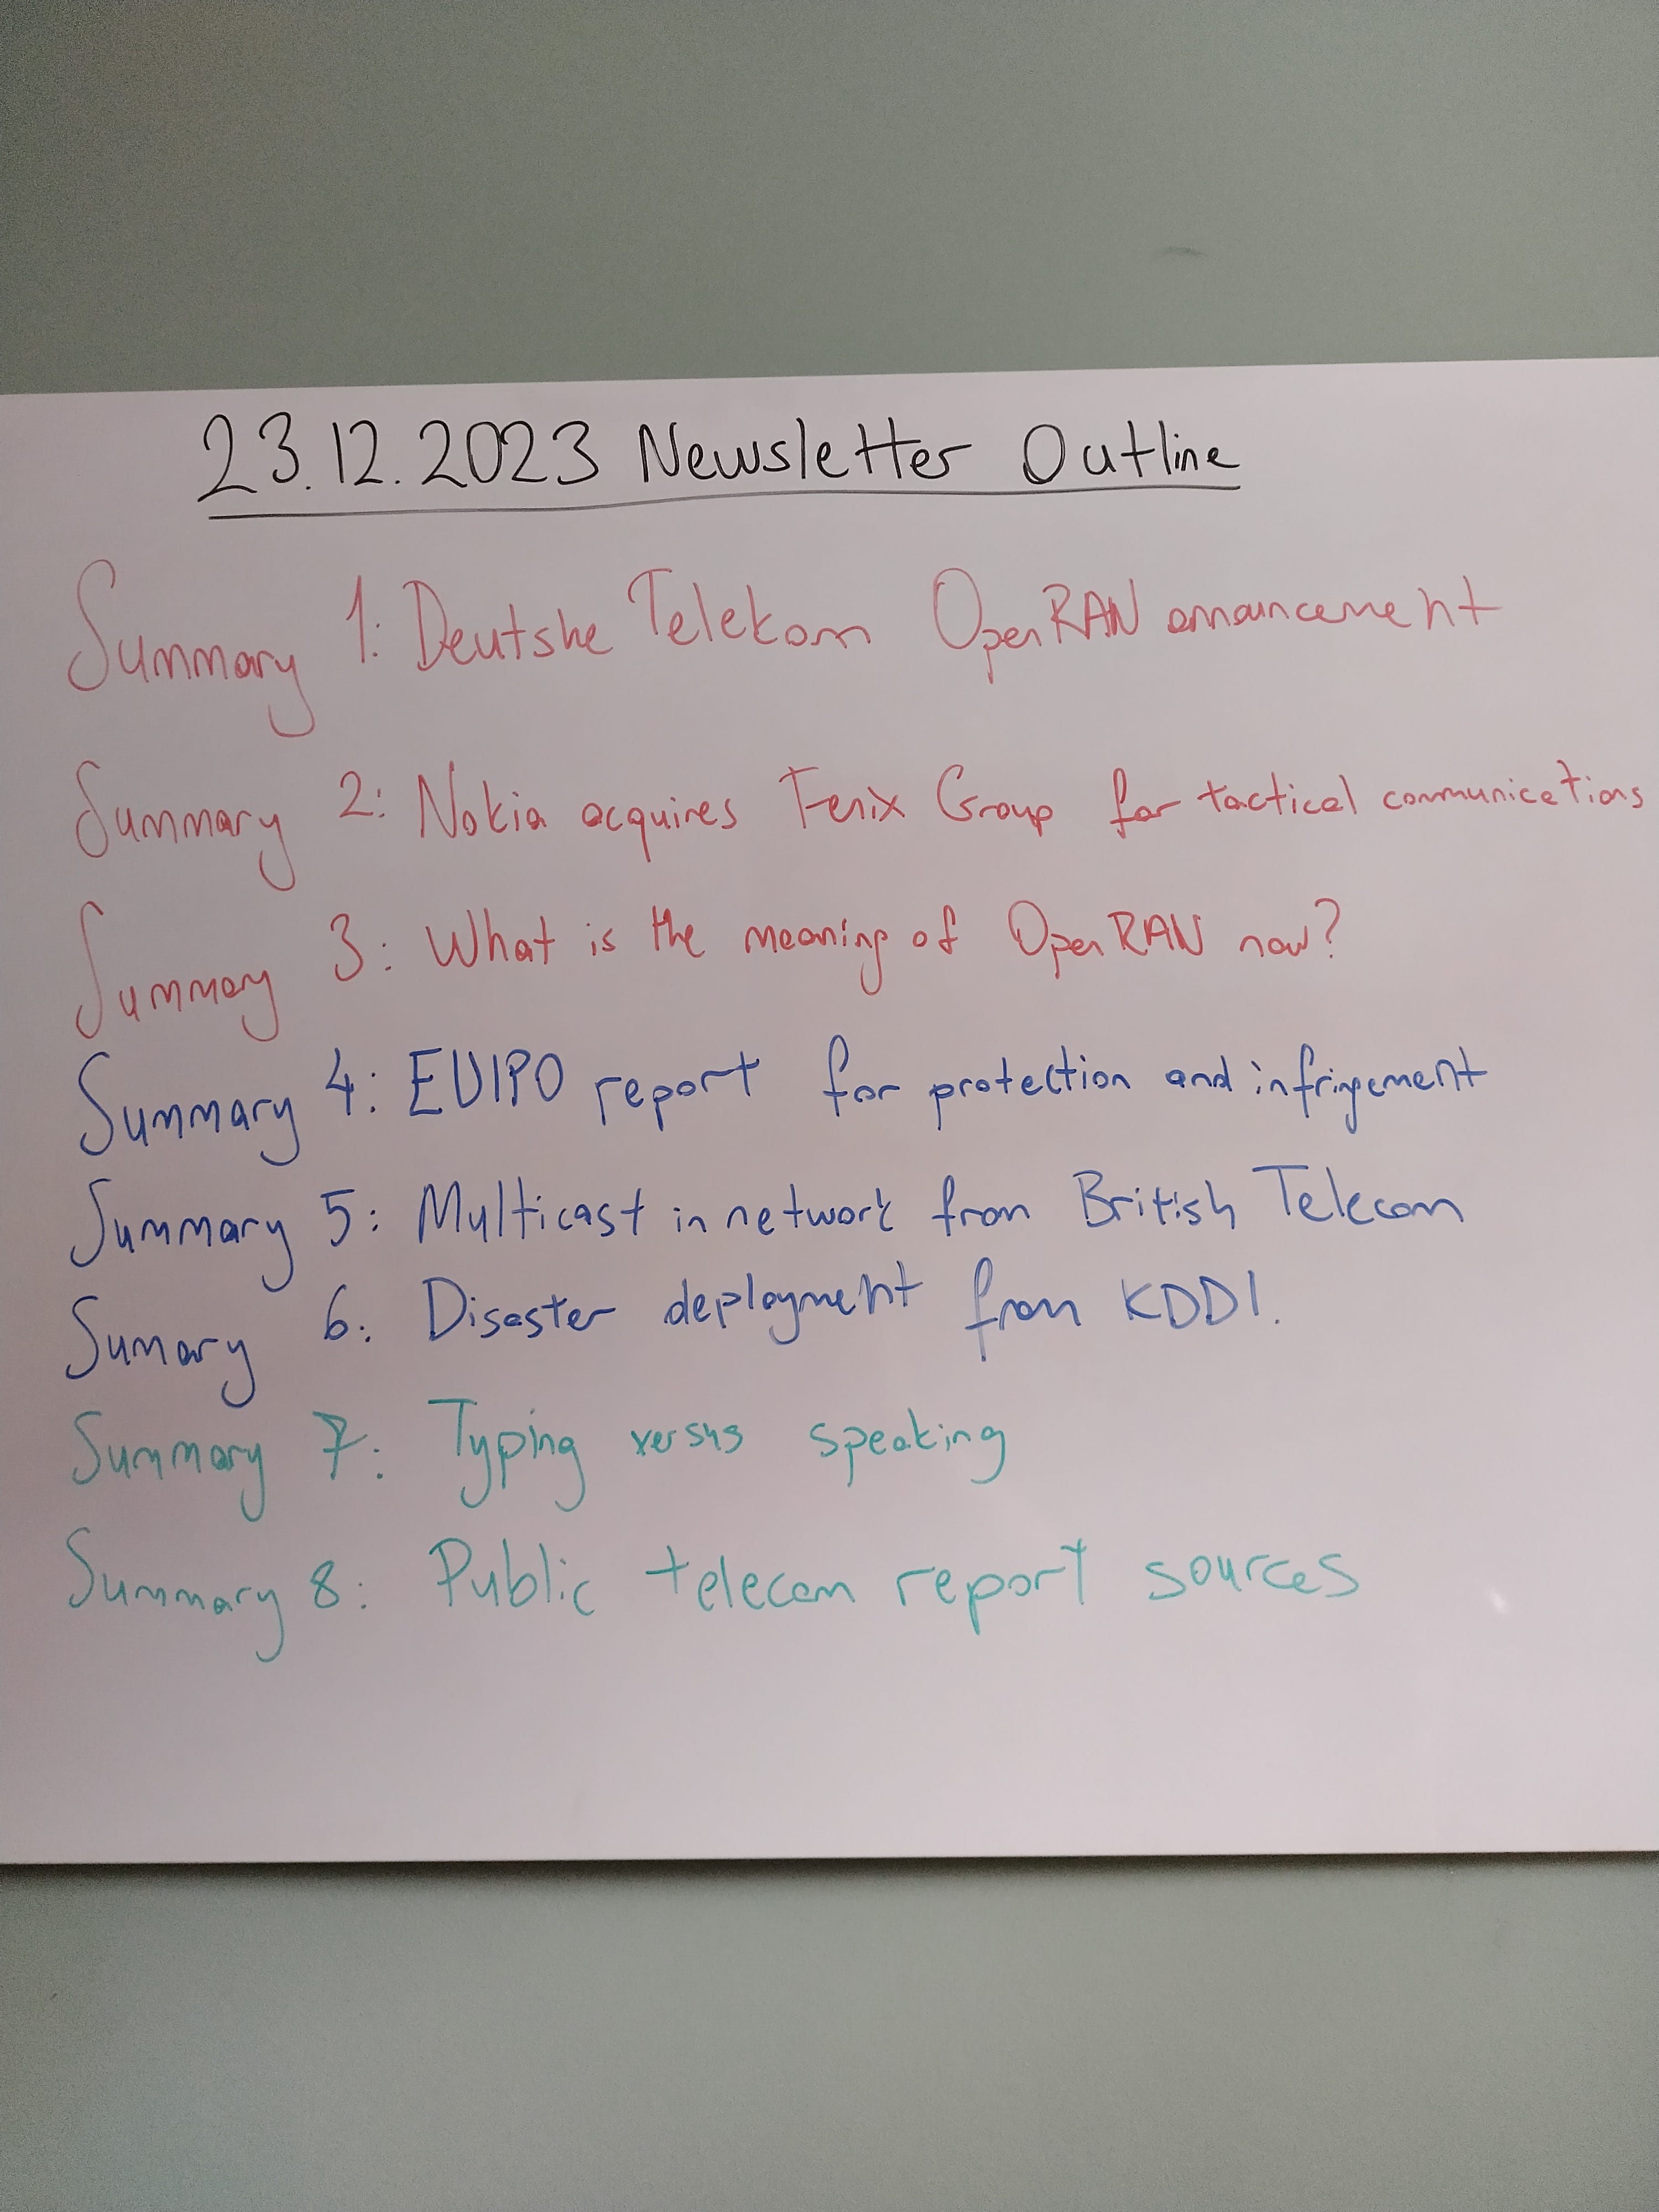 23.12.2023 Newsletter Outline
Summary 1: Deutshe Telekom OpenRAN annauncement
Summary 2: Nokia acquires Fenix Group for tactical communications
Summary 3: What is the meaning of OpenRAN now?
Summary 4: EUIPO report for protection and infringement
Summary 5: Multicast in network from British Telecom
Sumary 6: Disaster deployment from KDDI.
Summary 7: Typing versus speaking
Summary 8: Public telecom report sources